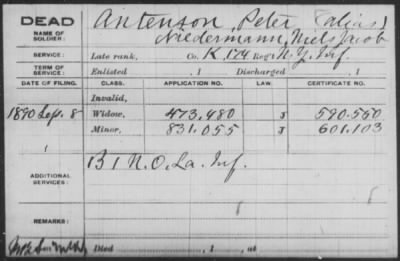 DEAD Antenson, Peter (alias)
NAME OF SOLDIER: Niedermann, Niels Jacob
SERVICE: Late rank, Co. K, 174 Reg't N.Y. Inf.
TERM OF SERVICE: Enlisted , 1 Discharged , 1
DATE OF FILING. CLASS. APPLICATION NO. LAW. CERTIFICATE NO.
Invalid,
1890 Sep. 8 Widow, 473.480 J 590.550
Minor, 831.055 J 601.103
ADDITIONAL SERVICES: B 1 N.O. La. Inf.
REMARKS:
Died , 1 , at